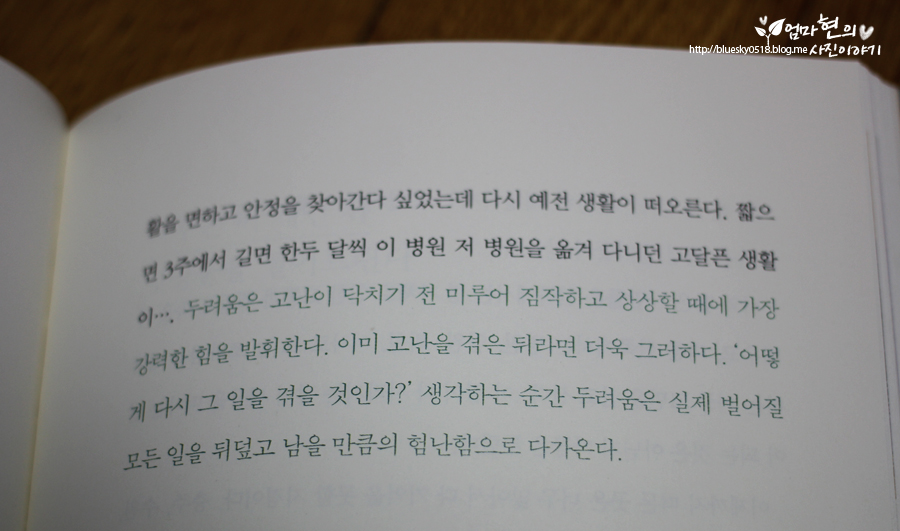 엄마현의
http://bluesky0518.blog.me 사진이야기
활을 면하고 안정을 찾아간다 싶었는데 다시 예전 생활이 떠오른다. 짧으
면 3주에서 길면 한두 달씩 이 병원 저 병원을 옮겨 다니던 고달픈 생활
이…. 두려움은 고난이 닥치기 전 미루어 짐작하고 상상할 때에 가장
강력한 힘을 발휘한다. 이미 고난을 겪은 뒤라면 더욱 그러하다. ‘어떻
게 다시 그 일을 겪을 것인가?’ 생각하는 순간 두려움은 실제 벌어질
모든 일을 뒤덮고 남을 만큼의 험난함으로 다가온다.